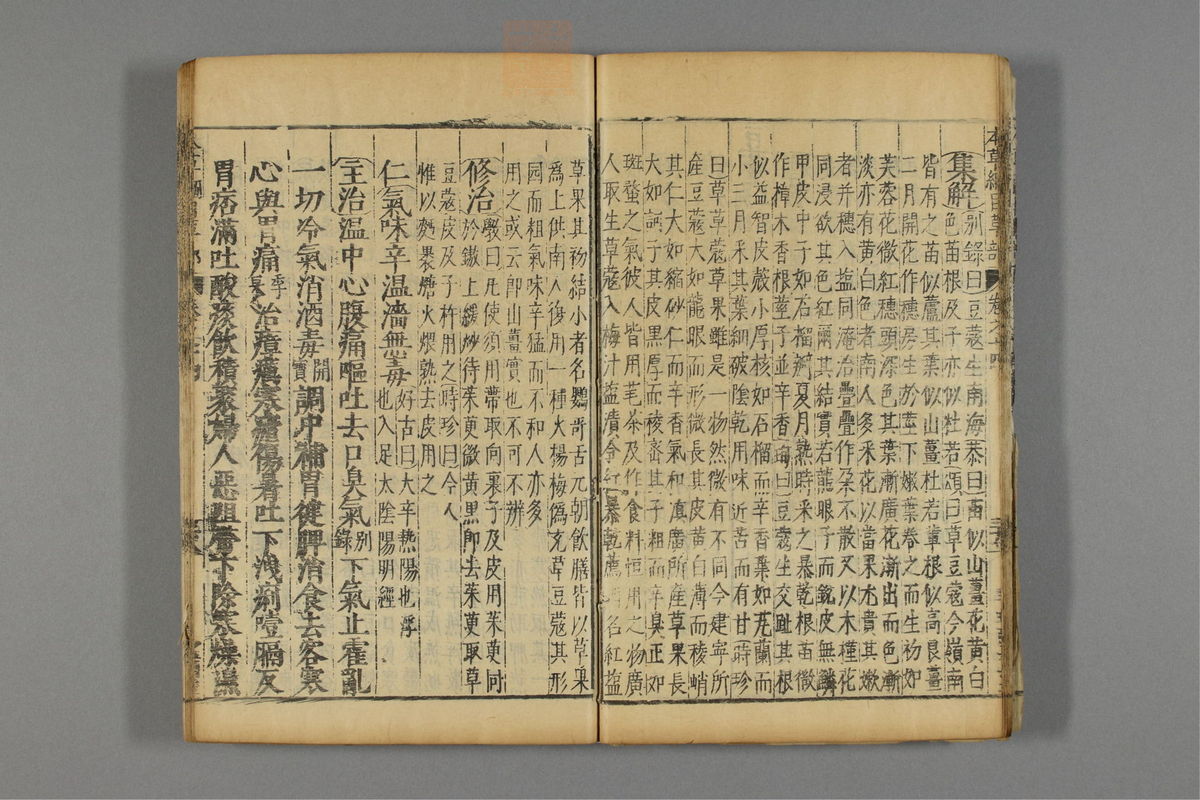 集解別錄曰豆蔻生南海恭曰苗似山薑花黃白
色苗根及子亦似杜若頌曰草豆蔻今嶺南
皆有之苗似蘆其葉似山薑杜若輩根似高良薑
二月開花作穗房生於莖下嫩葉卷之而生初如
芙蓉花微紅穗頭深色其葉漸廣花漸出而色漸
淡亦有黃白色者南人多采花以當果尤貴其嫩
者并穗入鹽同淹治疊疊作朶不散又以木槿花
同浸欲其色紅爾其結實若龍眼子而銳皮無鱗
甲皮中子如石榴瓣夏月熟時采之暴乾根苗微
作樟木香根莖子並辛香珣曰豆蔻生交趾其根
似益智皮殼小厚核如石榴而辛香葉如芄蘭而
小三月采其葉細破陰乾用味近苦而有甘時珍
曰草草蔻草果雖是一物然微有不同今建寧所
產豆蔻大如龍眼而形微長其皮黃白薄而稜峭
其仁大如縮砂仁而辛香氣和滇廣所產草果長
大如訶子其皮黑厚而稜密其子粗而辛臭正如
斑蝥之氣彼人皆用芼茶及作食料恒用之物廣
人取生草蔻入梅汁鹽漬令紅暴乾薦名紅鹽
草果其初結小者名鸚哥舌元朝飲膳皆以草果
爲上供南人復用一種火楊梅僞充草豆蔻其形
圓而粗氣味辛猛而不和人亦多
用之或云即山薑實也不可不辨
修治斅曰凡使須用蒂取向裏子及皮用茱萸同
於鏾上緩炒待茱萸微黃黑即去茱萸取草
豆蔻皮及子杵用之時珍曰今人
惟以麪裹煻火煨熟去皮用之
仁氣味辛溫濇無毒好古曰大辛熱陽也浮
也入足太陰陽明經
主治溫中心腹痛嘔吐去口臭氣別錄下氣止霍亂
一切冷氣消酒毒開寶調中補胃健脾消食去客寒
心與胃痛李杲治瘴癘寒瘧傷暑吐下洩痢噎膈反
胃痞滿吐酸痰飲積聚婦人惡阻帶下除寒燥濕